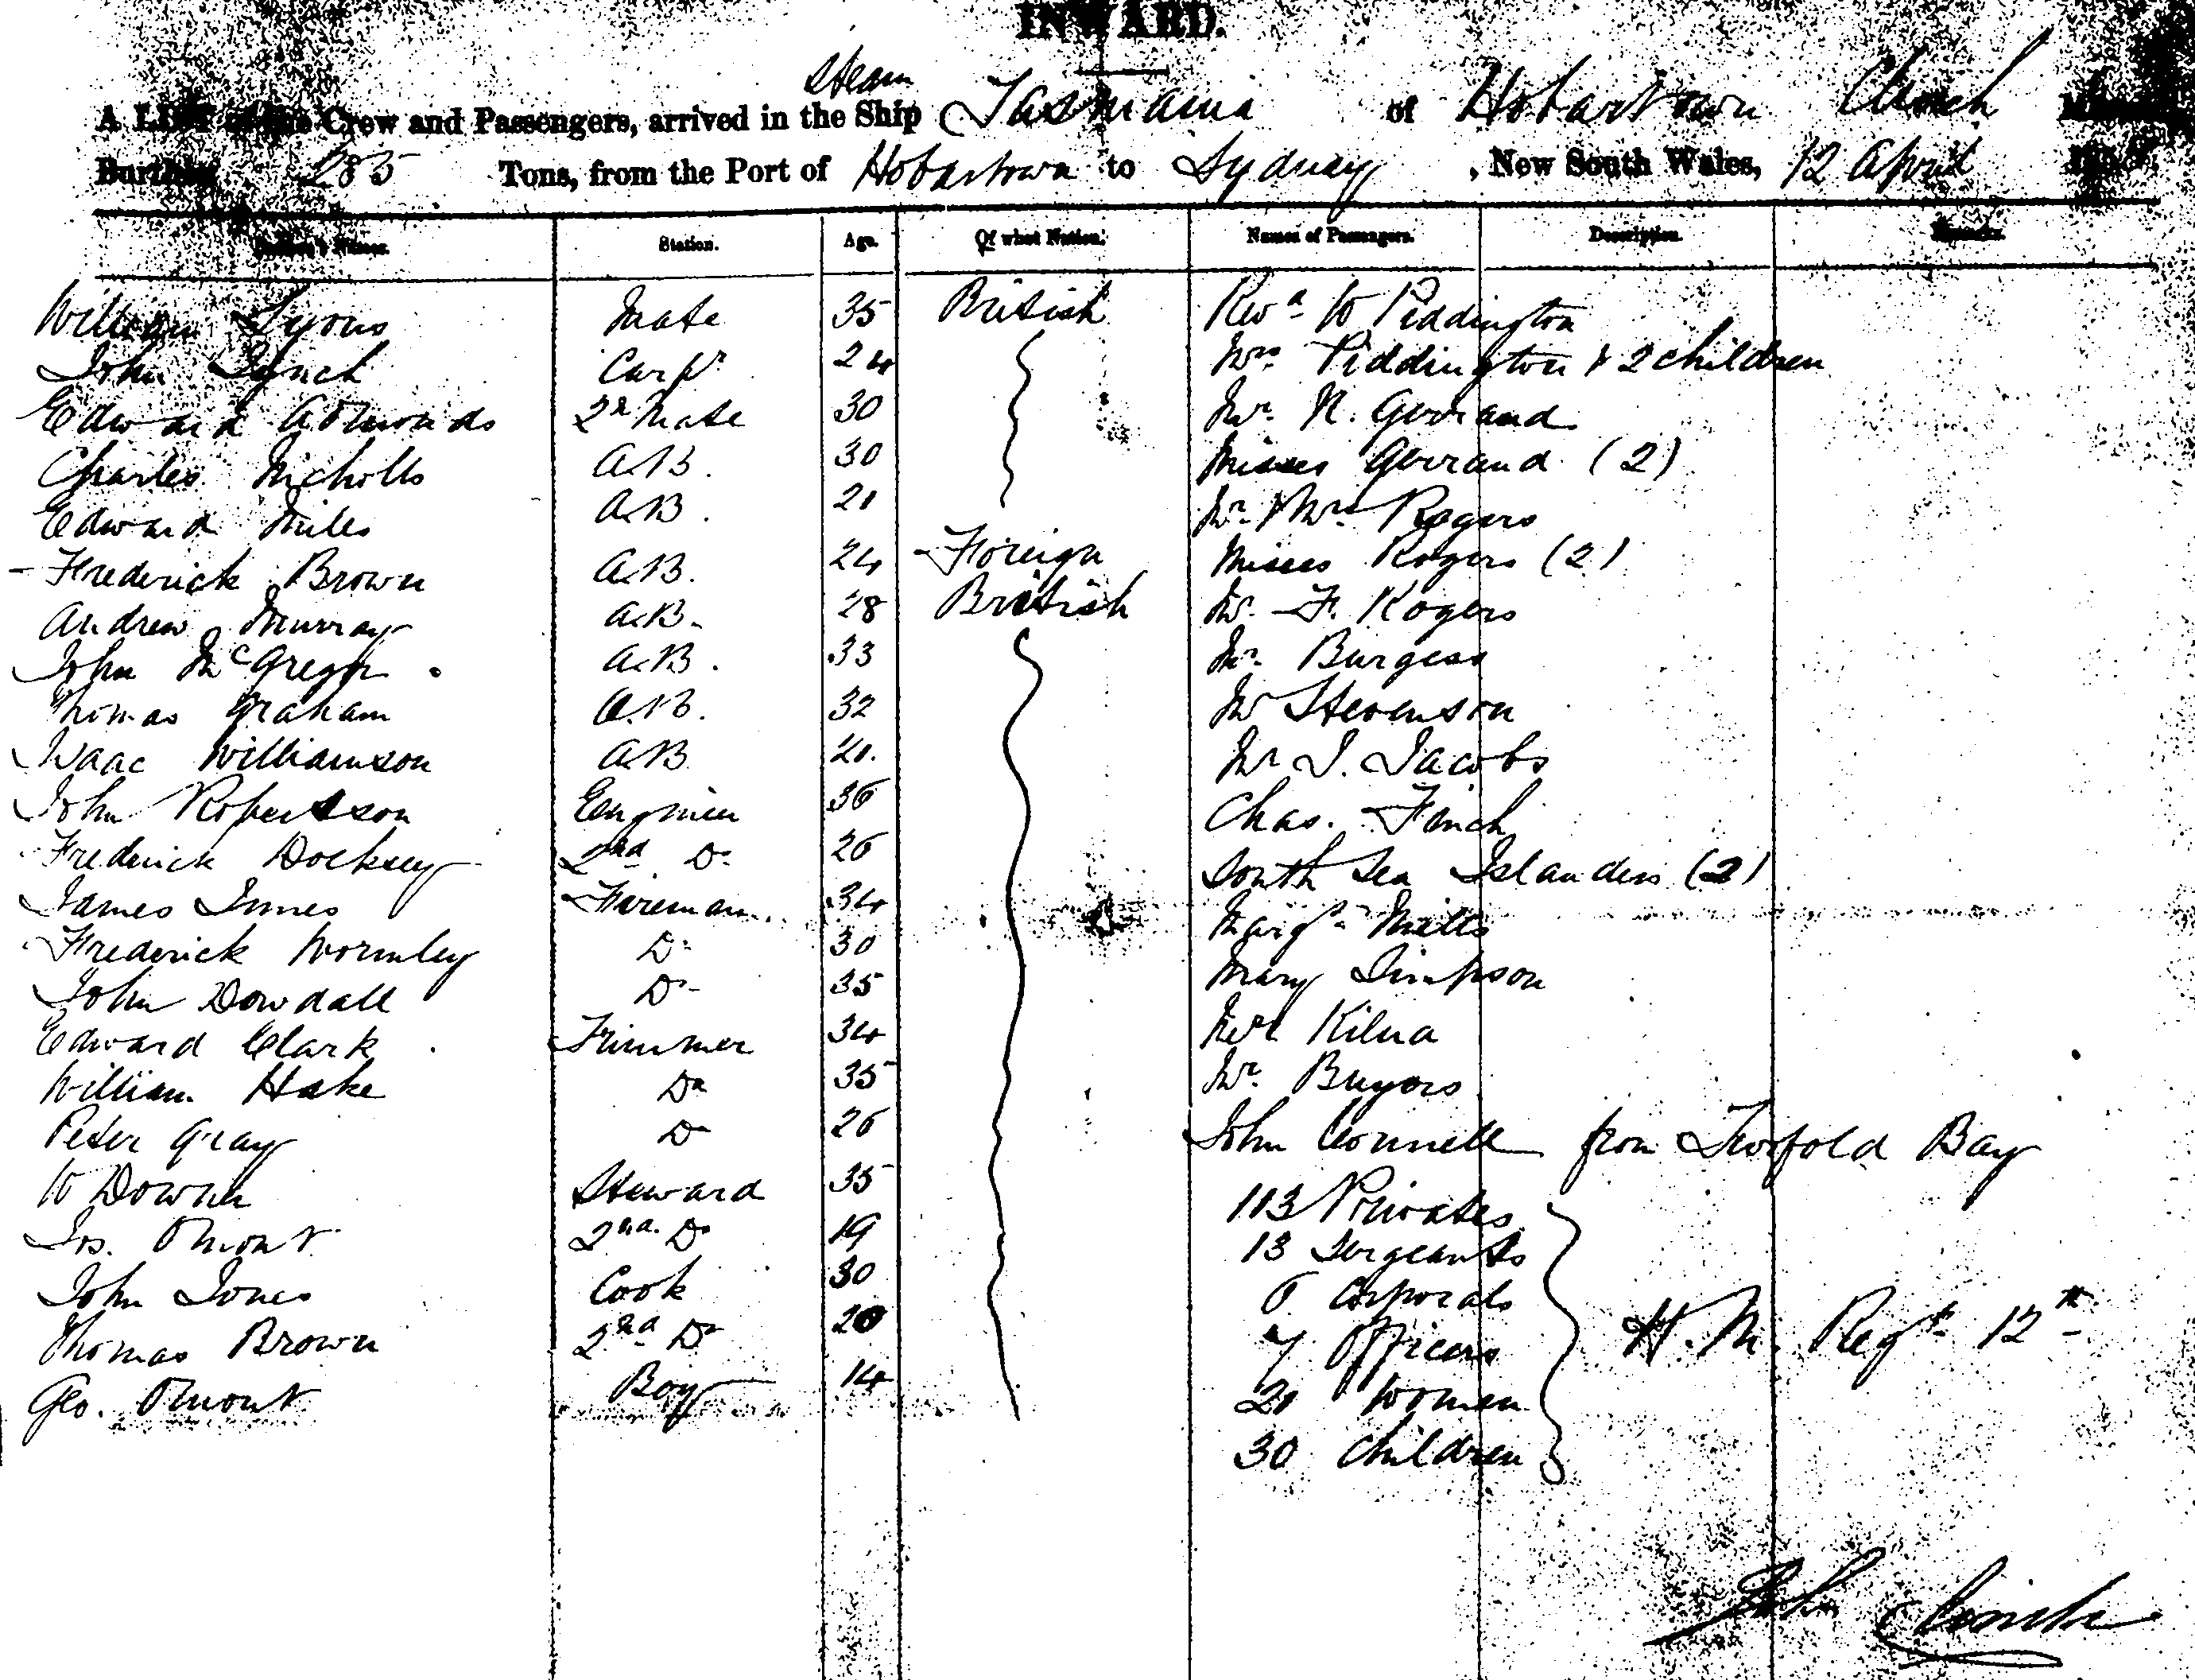 INWARD.
A LIST of the Crew and Passengers, arrived in the Steam Ship Tasmania of Hobartown Clinch
Burthen 285 Tons, from the Port of Hobartown to Sydney, New South Wales, 12 April
Station. Age. Of what Nation. Names of Passengers. Description.
William Lyons Mate 35 British Revd W Piddington
John Lynch Carpr 24 Mrs Piddington & 2 children
Edward 2d Mate 30 Mr N. Gerrand
Charles Nicholls A.B. 30 Misses Gerrand (2)
Edward Miles A.B. 21 Mr & Mrs Rogers
Frederick Brown A.B. 24 Foreign Misses Rogers (2)
Andrew Murray A.B. 28 British Mr F. Rogers
John McGregor A.B. 33 Mr Burgess
Thomas Graham A.B. 32 Mr Stevenson
Isaac Williamson A.B. Mr I. Jacobs
John Robertson Engineer 36 Chas. Finch
Frederick Docksey 2nd Do 26 South Sea Islanders (2)
James Innes Fireman 34 Margt Mills
Frederick Wormley Do 30 Mary Simpson
John Dowdall Do 35 Kilna
Edward Clark Trimmer 34 Mr Buyers
William Hake Do 35
Peter Gray Do 26 John Connell from Twofold Bay
W Downer Steward 35 113 Privates
Jos. Omont 2nd Do 19 13 Sergeants
John Jones Cook 30 Corporals
Thomas Brown 2nd Do 20 7 Officers H.M. Regt 12th
Geo. Omont Boy 14 Women
30 Children
John Clinch